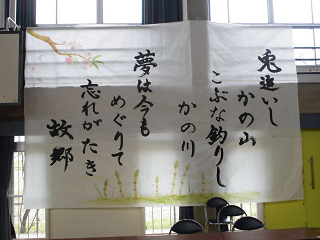 兎追いし
かの山
こぶな釣りし
かの川
夢は今も
めぐりて
忘れがたき
故郷